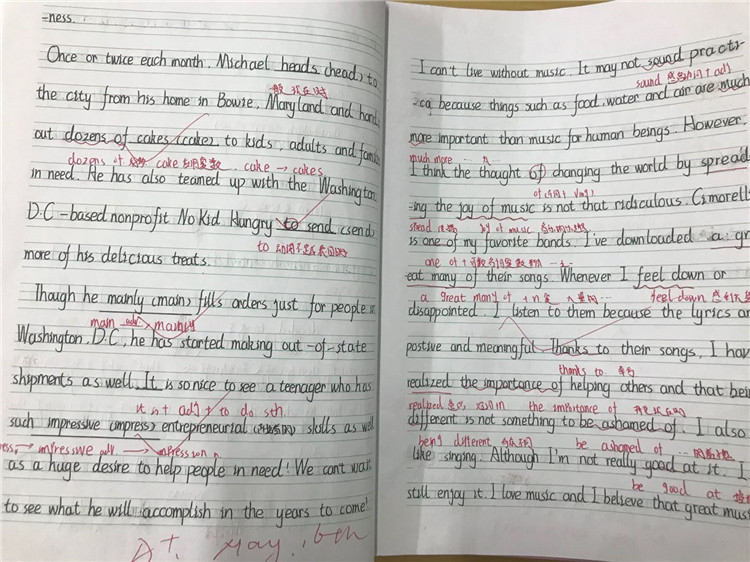 -ness.
Once or twice each month, Michael heads (head) to
the city from his home in Bowie, Maryland and hands
out dozens of cakes (cake) to kids, adults and
dozens of cake cake → cakes
in need. He has also teamed up with the Washington
D.C-based nonprofit No Kid Hungry to send (send)
to
more of his delicious treats.
Though he mainly (main) fills orders just for people in
main adv mainly
Washington, D.C, he has started making out-of-state
shipments as well. It is so nice to see a teenager who has
it is + adj + to do sth.
such impressive (impress) entrepreneurial skills as well
→ impressive adj. → impression n.
as a huge desire to help people in need! We can't wait
to see what he will accomplish in the years to come!
A+. May. 6th
I can't live without music. It may not sound practi-
sound + adj
-cal because things such as food, water and air are much
more important than music for human beings. However,
much more
I think the thought of changing the world by spread-
-ing the joy of music is not that ridiculous. Cimorelli
spread joy of music
is one of my favorite bands. I've downloaded a gr-
one of +
-eat many of their songs. Whenever I feel down or
a great many of + n feel down
disappointed, I listen to them because the lyrics are
postive and meaningful. Thanks to their songs, I have
thanks to
realized the importance of helping others and that being
realized the importance of
different is not something to be ashamed of. I also
being different be ashamed of
like singing. Although I'm not really good at it, I
be good at
still enjoy it. I love music and I believe that great music